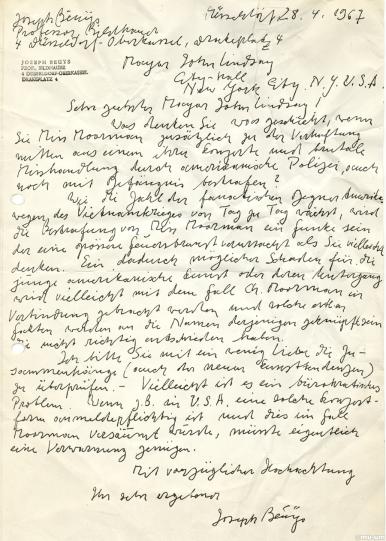 Joseph Beuys
Professor, Bildhauer
4 Düsseldorf-Oberkassel, Drakeplatz 4
Düsseldorf 28. 4. 1967
JOSEPH BEUYS
PROF. BILDHAUER
4 DÜSSELDORF-OBERKASSEL
DRAKEPLATZ 4
Mayor John Lindsay
City-Hall
New York City. N.Y. U.S.A.
Sehr geehrter Mayor John Lindsay!
Was denken Sie was geschieht, wenn
Sie Miss Moorman zusätzlich zu der Verhaftung
mitten aus einem ihrer Konzerte und
Misshandlung durch amerikanische Polizei, auch
noch mit Gefängnis bestrafen?
Wie die Zahl der fanatischen Gegner Amerikas
wegen des Vietnamkrieges von Tag zu Tag wächst, wird
die Bestrafung von Miss Moorman ein Funke sein
der eine grössere Feuerbrunst verursacht als Sie vielleicht
denken. Ein dadurch möglicher Schaden für die
junge amerikanische Kunst oder deren Untergang
wird vielleicht mit dem Fall Ch. Moorman in
Verbindung gebracht werden und solche
Fakten werden an die Namen derjenigen geknüpft sein
die nicht richtig entschieden haben.
Ich bitte Sie mit ein wenig Liebe die Zu-
sammenhänge (auch der neuen Kunsttendenzen)
zu überprüfen. - Vielleicht ist es ein bürokratisches
Problem. Wenn z.B. in U.S.A. eine solche Konzert-
form anmeldepflichtig ist und dies im Fall
Moorman versäumt würde, müsste eigentlich
eine Verwarnung genügen.
Mit vorzüglicher Hochachtung
Ihr sehr ergebener
Joseph Beuys